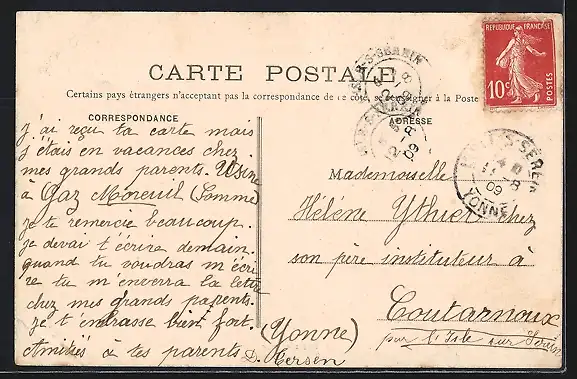 CARTE POSTALE
Certains pays étrangers n'acceptant pas la correspondance de ce côté, se renseigner à la Poste
CORRESPONDANCE
ADRESSE
REPUBLIQUE FRANÇAISE
10c
POSTES
j'ai reçu ta carte mais
j'étais en vacances chez
mes grands parents. Usine
à Gaz Moreuil (Somme)
je te remercie beaucoup.
je devai t'écrire demain.
quand tu voudras m'écri
re tu m'enverra la lettre
chez mes grands parents.
je t'embrasse bien fort.
Amitiés à tes parents
Mademoiselle
Hélène Ythier chez
son père instituteur à
Coutarnoux
par l'Isle sur Serein
(Yonne)
S-SEREIN
09
YONNE